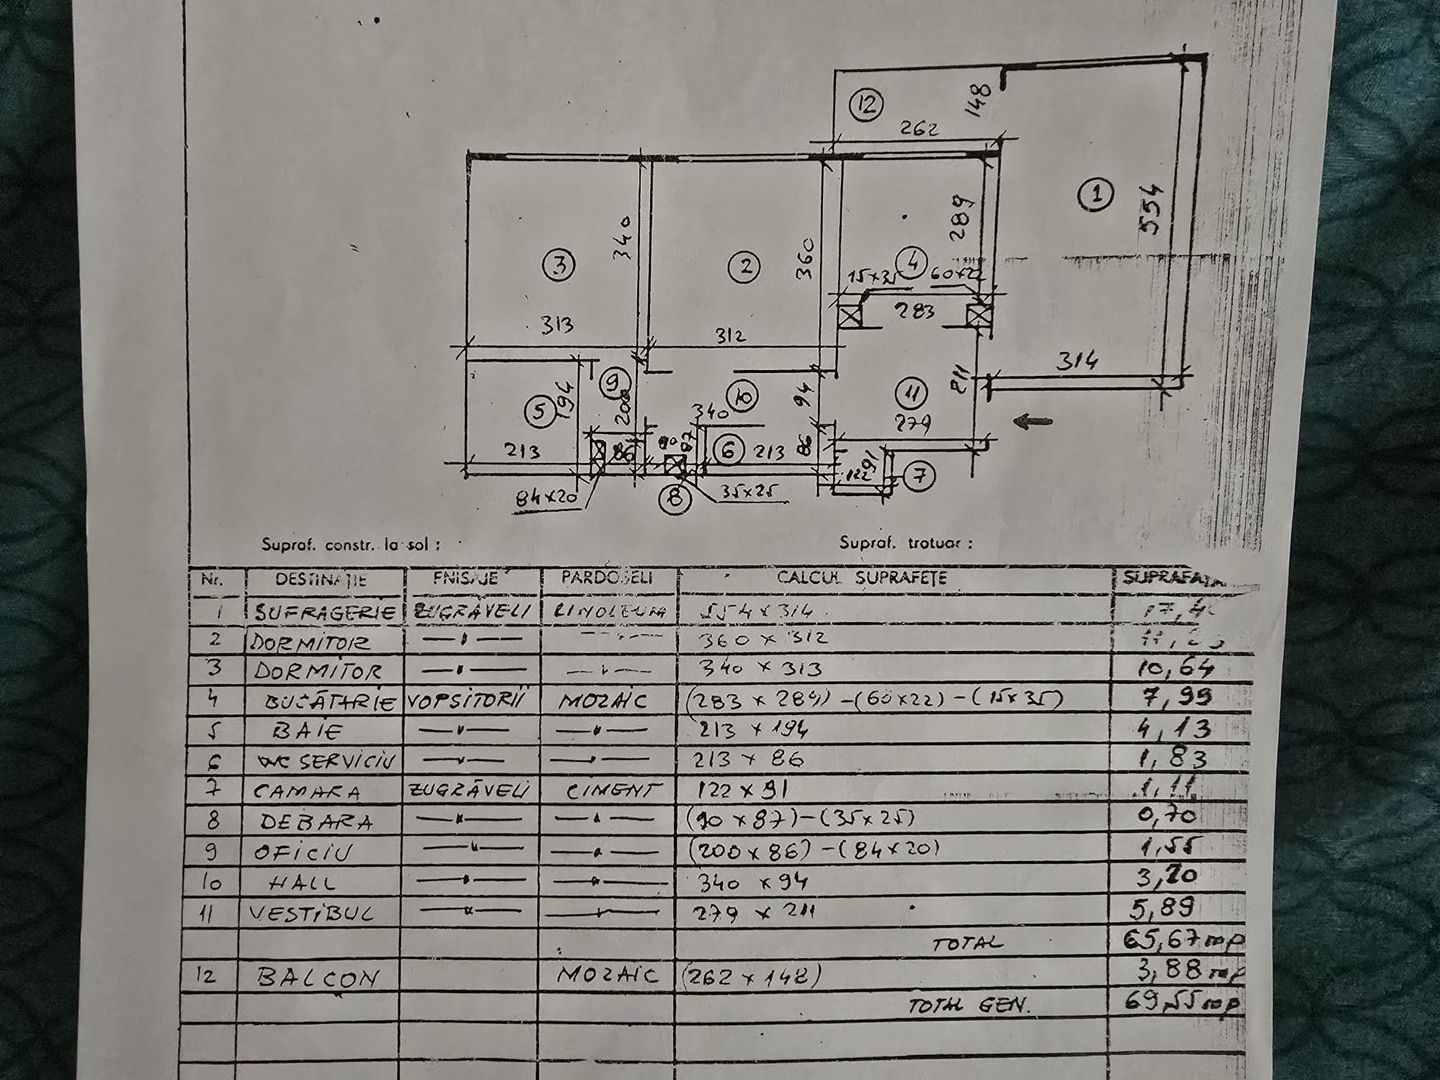 12
148
262
1
554
289
340
360
3
2
4
15x35
60x22
283
313
312
314
9
194
200
5
10
340
94
11
211
279
213
86
90
87
6
213
86
122
91
7
84x20
8
35x25
Supraf. constr. la sol :
Supraf. trotuar :
Nr. DESTINAȚIE FINISAJE PARDOSELI CALCUL SUPRAFEȚE SUPRAFAȚA
1 SUFRAGERIE ZUGRĂVELI LINOLEUM 554 x 314 17,40
2 DORMITOR —"— —"— 360 x 312 11,23
3 DORMITOR —"— —"— 340 x 313 10,64
4 BUCĂTĂRIE VOPSITORII MOZAIC (283 x 289) - (60x22) - (15x35) 7,99
5 BAIE —"— —"— 213 x 194 4,13
6 WC SERVICIU —"— —"— 213 x 86 1,83
7 CAMARA ZUGRĂVELI CIMENT 122 x 91 1,11
8 DEBARA —"— —"— (90 x 87) - (35x25) 0,70
9 OFICIU —"— —"— (200 x 86) - (84x20) 1,55
10 HALL —"— —"— 340 x 94 3,20
11 VESTIBUL —"— —"— 279 x 211 5,89
TOTAL 65,67 mp
12 BALCON MOZAIC (262 x 148) 3,88 mp
TOTAL GEN. 69,55 mp